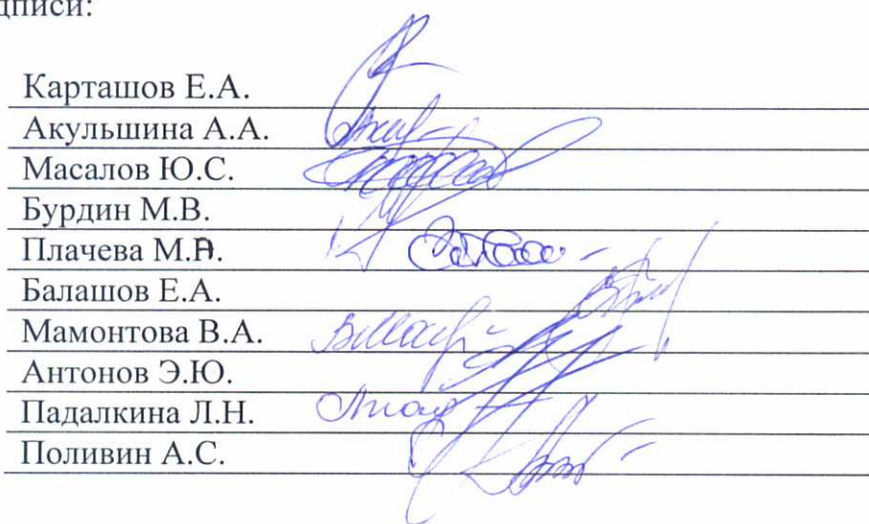 дписи:
Карташов Е.А.
Акульшина А.А.
Масалов Ю.С.
Бурдин М.В.
Плачева М.А.
Балашов Е.А.
Мамонтова В.А.
Антонов Э.Ю.
Падалкина Л.Н.
Поливин А.С.